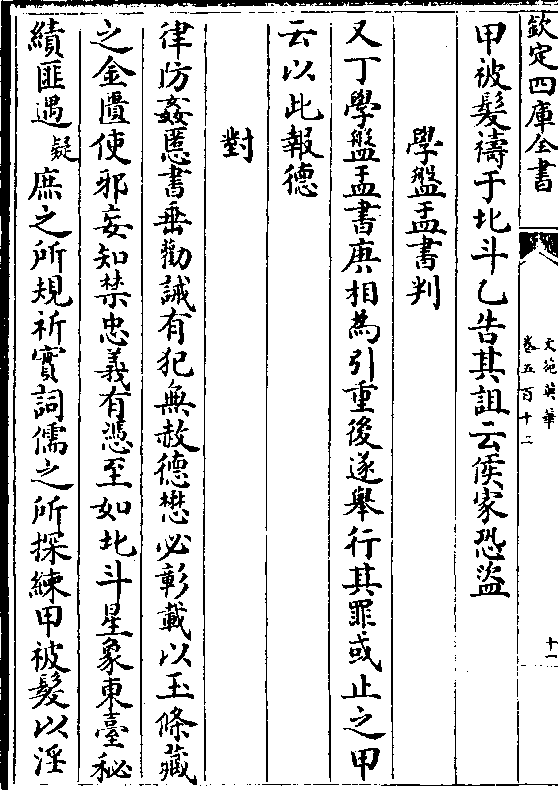 欽定四庫全書
文苑英華
卷五百十二
十一
甲被髮禱于北斗乙告其詛云侯家恐盜
學盤盂書判
又丁學盤盂書庚相為引重後遂舉行其罪或止之甲
云以此報德
對
律防姦慝書垂勸誡有犯無赦德懋必彰載以玉條藏
之金匱使邪妄知禁忠義有憑至如北斗星象東臺秘
績匪遇疑庶之所規祈實詞儒之所探練甲被髮以淫